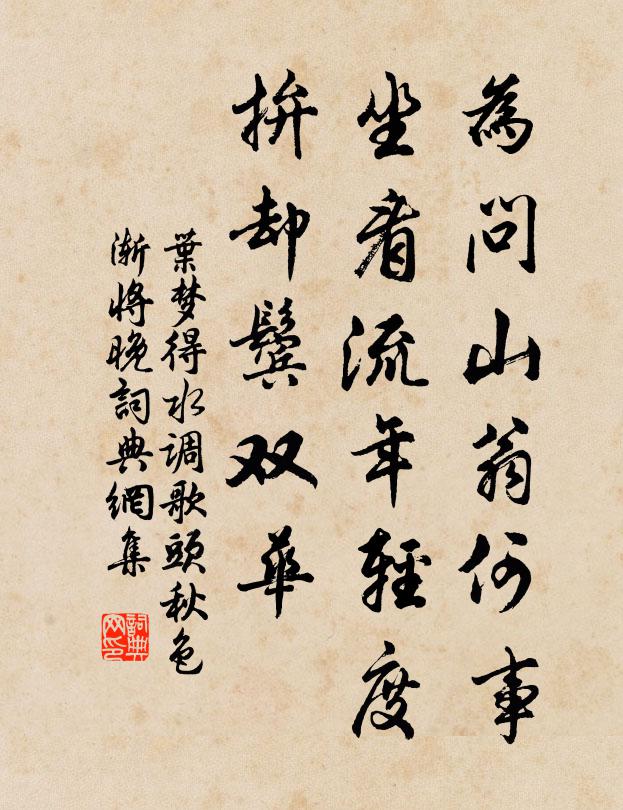 為问山翁何事
坐看流年輕度
拚却鬓双華
葉梦得水调歌頭秋色
渐将晚詞典網集
詞典
网印